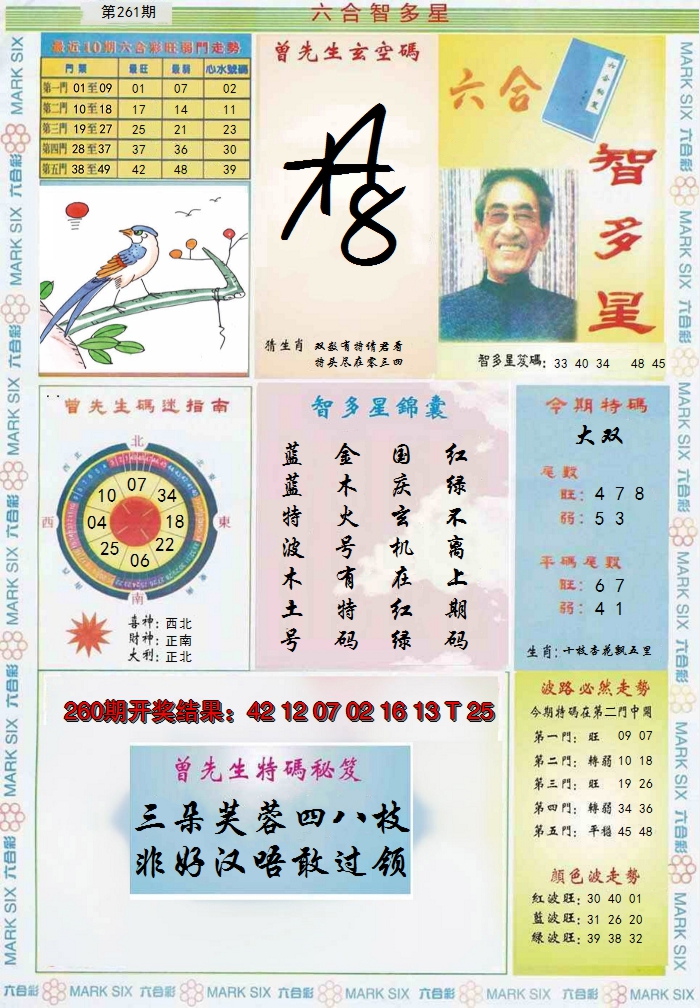 第261期
六合智多星
最近10期六合彩旺弱門走勢
門類 最旺 最弱 心水號碼
第一門 01至09 01 07 02
第二門 10至18 17 14 11
第三門 19至27 25 21 23
第四門 28至37 37 36 30
第五門 38至49 42 48 39
曾先生玄空碼
猜生肖 双数有特倩君看
特头尽在零三四
六合
智多星
智多星笈碼: 33 40 34 48 45
曾先生碼迷指南
北
西
東
南
07
10 34
04 18
25 22
06
喜神: 西北
財神: 正南
大利: 正北
智多星錦囊
红绿不离上期码
国庆玄机在红绿
金木火号有特码
蓝蓝特波木土号
今期特碼
大双
尾數
旺: 4 7 8
弱: 5 3
平碼尾數
旺: 6 7
弱: 4 1
生肖: 十枝杏花飘五里
260期开奖结果: 42 12 07 02 16 13 T 25
曾先生特碼秘笈
三朵芙蓉四八枝
非好汉唔敢过领
波路必然走勢
今期特碼在第二門中開
第一門: 旺 09 07
第二門: 轉弱 10 18
第三門: 旺 19 26
第四門: 轉弱 34 36
第五門: 平穩 45 48
顏色波走勢
紅波旺: 30 40 01
藍波旺: 31 26 20
綠波旺: 39 38 32
MARK SIX 六合彩 MARK SIX 六合彩 MARK SIX 六合彩 MARK SIX 六合彩 MARK SIX 六合彩